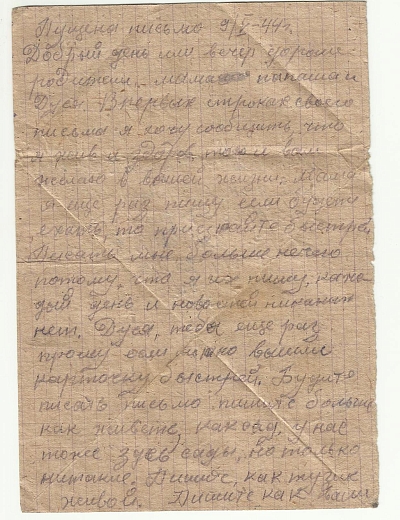 Пущена письмо 9/V-44 г.
Добрый день или вечер дорогие
родители, мама папаша и
Дуся. В первых строках своего
письма я хочу сообщить, что
я жив и здоров, того и вам
желаю в вашей жизни. Мама
я еще раз пишу если будете
ехать то приезжайте быстрей,
Писать мне больше нечего
потому, что я их пишу каж
дый день и новостей никаких
нет. Дуся, тебя еще раз
прошу если можно вышли
карточку быстрей. Будите
писать письмо пишите больше
как живете, как сад, у нас
тоже здесь сады, но только
Пишите, как
живов. Пишите как